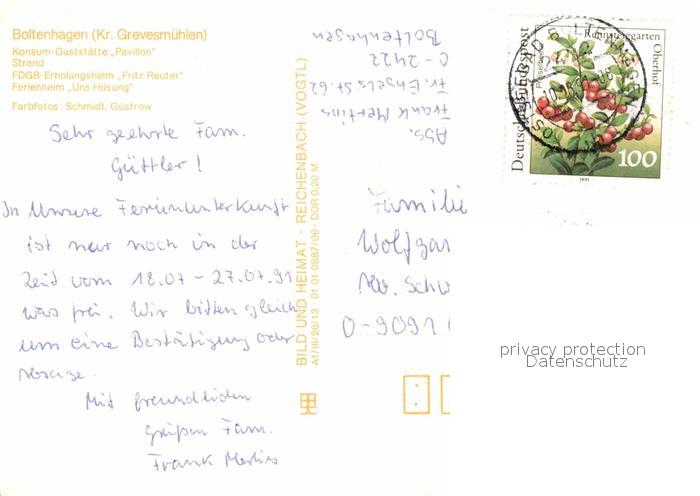 Boltenhagen (Kr. Grevesmühlen)
Konsum-Gaststätte „Pavillon"
Strand
FDGB-Erholungsheim „Fritz Reuter"
Ferienheim „Uns Hüsung"
Farbfotos: Schmidt, Güstrow
Sehr geehrte Fam.
Güttler!
In Unsere Ferienunterkunft
ist nur noch in der
Zeit vom 18.07 - 27.07.91
was frei. Wir bitten gleich
um eine Bestätigung oder
Absage.
Mit freundlichen
grüßen Fam.
Frank Mertins
BILD UND HEIMAT · REICHENBACH (VOGTL)
A1/III/26/13 01 01 0887/06 · DDR 0,20 M
Abs.
Frank Mertins
Fr. Engels St. 62
O-2422
Boltenhagen
Familie
Wolfgan
Schw
O-9091
Deutsche Bundespost
Preiselbeere
Rennsteiggarten
Oberhof
100
1991
privacy protection
Datenschutz